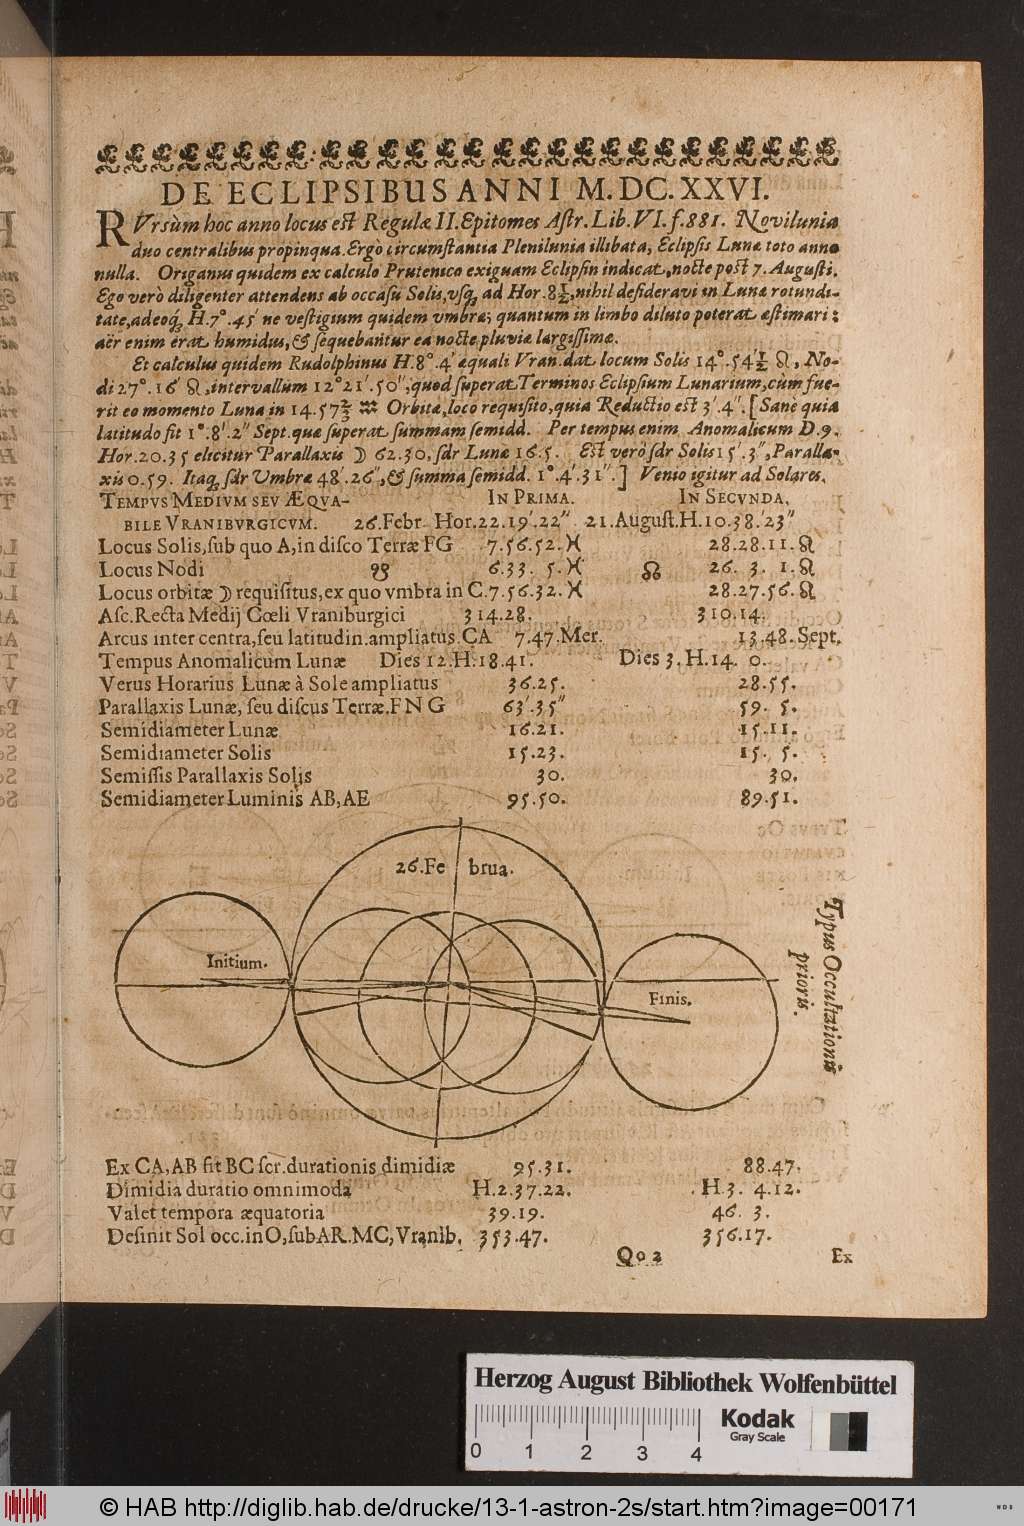 DE ECLIPSIBUS ANNI M.DC.XXVI.
RVrsùm hoc anno locus est Regulæ II. Epitomes Astr. Lib. VI. f. 881. Novilunia
duo centralibus propinqua. Ergò circumstantia Plenilunia illibata, Eclipsis Lunæ toto anno
nulla. Origanus quidem ex calculo Prutenico exiguam Eclipsin indicat, nocte post 7. Augusti.
Ego verò diligenter attendens ab occasu Solis, vsq; ad Hor. 8½, nihil desideravi in Lunæ rotundi-
tate, adeoq́; H. 7°. 45′ ne vestigium quidem vmbræ; quantum in limbo diluto poterat æstimari:
aër enim erat humidus, & sequebantur ea nocte pluviæ largissimæ.
Et calculus quidem Rudolphinus H. 8°. 4′ æquali Vran. dat locum Solis 14°. 54′½ ♌, No-
di 27°. 16′ ♌, intervallum 12°21′. 50″, quod superat Terminos Eclipsium Lunarium, cùm fue-
rit eo momento Luna in 14. 57⅔ ♒ Orbitæ, loco requisito, quia Reductio est 3′. 4″. [Sanè quia
latitudo fit 1°. 8′. 2″ Sept. quæ superat summam semidd. Per tempus enim Anomalicum D. 9.
Hor. 20. 35 elicitur Parallaxis ☽ 62. 30, sdr Lunæ 16. 5. Est verò sdr Solis 15′. 3″, Paralla-
xis 0. 59. Itaq, sdr Vmbræ 48′. 26″, & summa semidd. 1°. 4′. 31″.] Venio igitur ad Solares.
TEMPVS MEDIVM SEV ÆQVA- IN PRIMA. IN SECVNDA.
BILE VRANIBVRGICVM. 26. Febr. Hor. 22. 19′. 22″ 21. August. H. 10. 38. ′23″
Locus Solis, sub quo A, in disco Terræ FG 7. 56. 52. ♓ 28. 28. 11. ♌
Locus Nodi ☋ 6. 33. 5. ♓ ☊ 26. 3. 1. ♌
Locus orbitæ ☽ requisitus, ex quo vmbra in C. 7. 56. 32. ♓ 28. 27. 56. ♌
Asc. Recta Medij Cœli Vraniburgici 314. 28. 310. 14.
Arcus inter centra, seu latitudin. ampliatus. CA 7. 47. Mer. 13. 48. Sept.
Tempus Anomalicum Lunæ Dies 12. H. 18. 41. Dies 3. H. 14. 0.
Verus Horarius Lunæ à Sole ampliatus 36. 25. 28. 55.
Parallaxis Lunæ, seu discus Terræ. F N G 63′. 35″ 59. 5.
Semidiameter Lunæ 16. 21. 15. 11.
Semidiameter Solis 15. 23. 15. 5.
Semissis Parallaxis Solis 30. 30.
Semidiameter Luminis AB, AE 95. 50. 89. 51.
26. Februa.
Initium.
Finis.
Typus Occultationis
prioris.
Ex CA, AB fit BC scr. durationis dimidiæ 95. 31. 88. 47.
Dimidia duratio omnimoda H. 2. 37. 22. H. 3. 4. 12.
Valet tempora æquatoria 39. 19. 46. 3.
Desinit Sol occ. in O, sub AR. MC, Vranib. 353. 47. 356. 17.
Qo 2 Ex
Herzog August Bibliothek Wolfenbüttel
Kodak
Gray Scale
0 1 2 3 4
© HAB http://diglib.hab.de/drucke/13-1-astron-2s/start.htm?image=00171